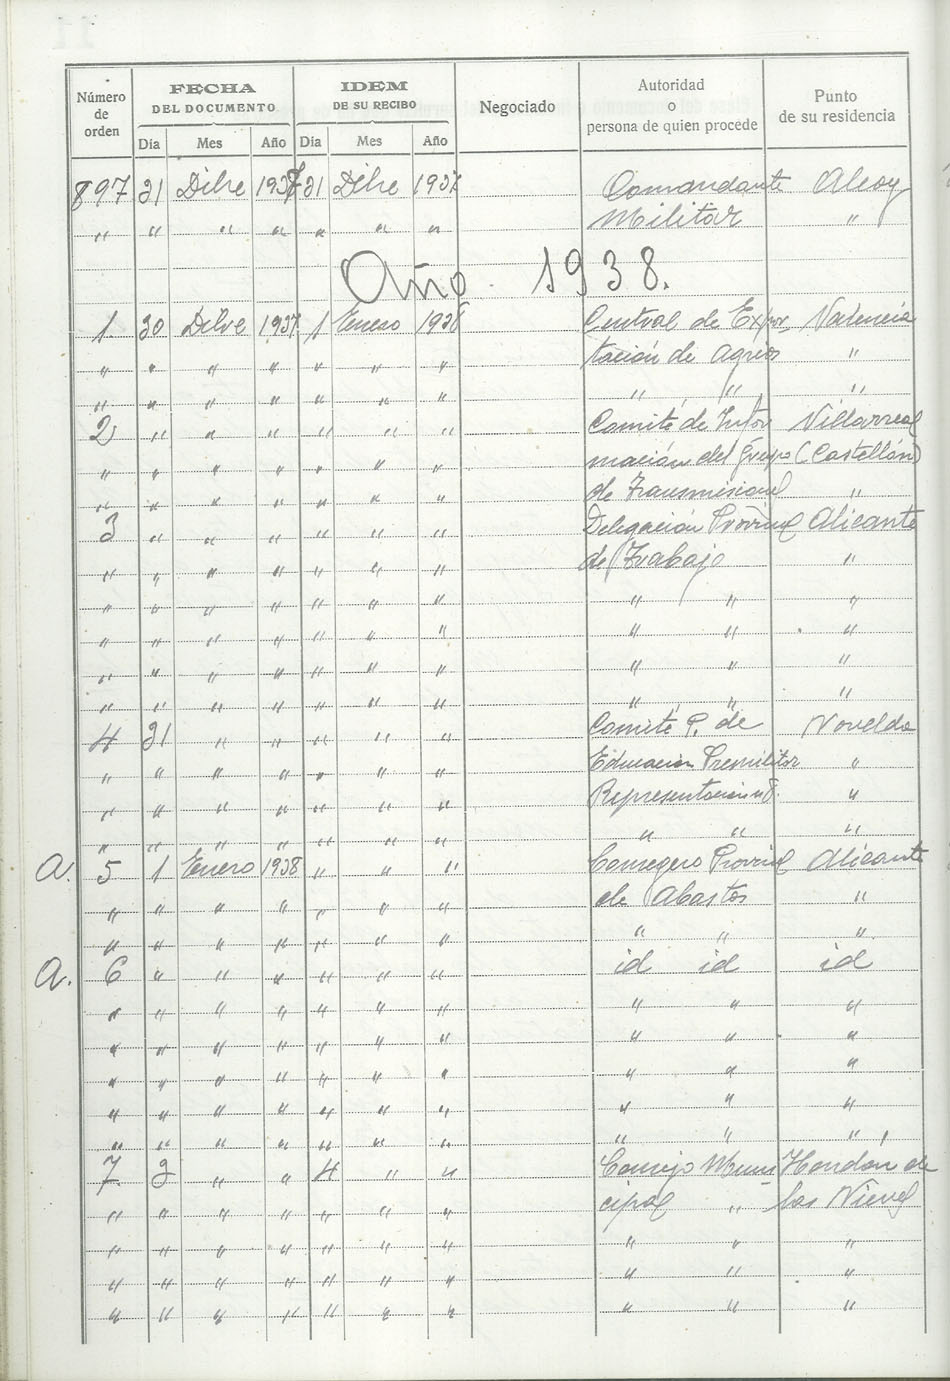 Número de orden | FECHA DEL DOCUMENTO | IDEM DE SU RECIBO | Negociado | Autoridad o persona de quien procede | Punto de su residencia
Día | Mes | Año | Día | Mes | Año
897 31 Dibre 1937 31 Dibre 1937 Comandante Alcoy
" " " " " " " Militar "
Año 1938.
1 30 Dibre 1937 1 Enero 1938 Central de Expor Valencia
" " " " " " " tación de Agrios "
" " " " " " " " " "
2 " " " " " " Comité de Infor Villarreal
" " " " " " " mación del Grupo (Castellón)
" " " " " " " de Transmisional "
3 " " " " " " Delegación Provinl Alicante
" " " " " " " de Trabajo "
" " " " " " " " " "
" " " " " " " " " "
" " " " " " " " " "
" " " " " " " " " "
4 31 " " " " " Comité P. de Novelda
" " " " " " " Educacion Premilitar "
" " " " " " " Representacion nº 8. "
" " " " " " " " " "
a. 5 1 Enero 1938 " " " Consegero Provinl Alicante
" " " " " " " de Abastos "
" " " " " " " " " "
a. 6 " " " " " " id id id
" " " " " " " " " "
" " " " " " " " " "
" " " " " " " " " "
" " " " " " " " " "
" " " " " " " " " "
7 2 " " 4 " " Consejo Muni Hondon de
" " " " " " " cipal " las Nieves
" " " " " " " " " "
" " " " " " " " " "
" " " " " " " " " "